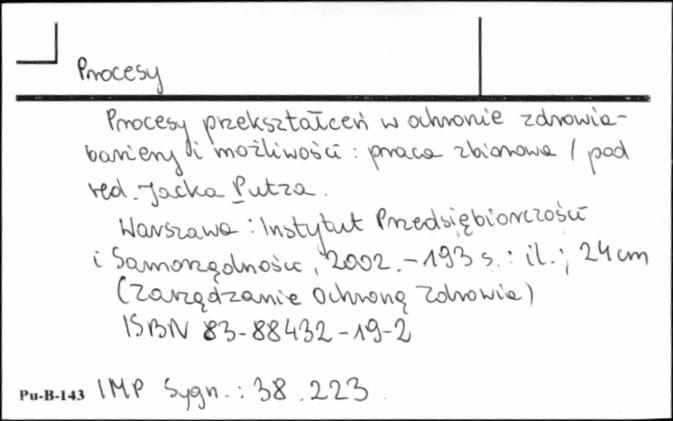 Procesy
Procesy przekształceń w ochronie zdrowia-
bariery i możliwości : praca zbiorowa / pod
red. Jacka Putza.
Warszawa : Instytut Przedsiębiorczości
i Samorządności, 2002. - 193 s. : il. ; 24 cm
(Zarządzanie Ochroną Zdrowia)
ISBN 83-88432-19-2
Pu-B-143 IMP Sygn. : 38.223